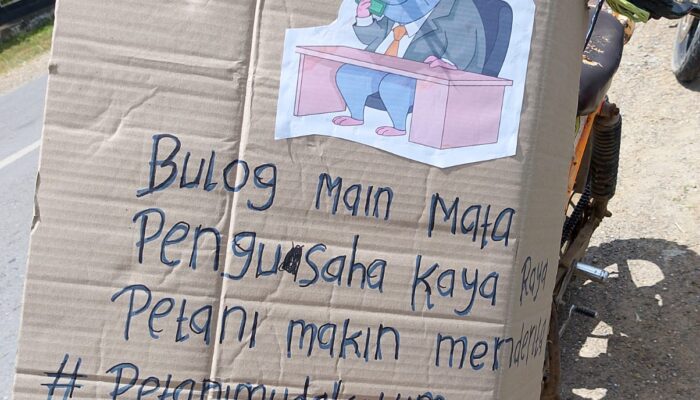 Bulog Main Mata
Pengusaha kaya Raya
Petani makin menderita